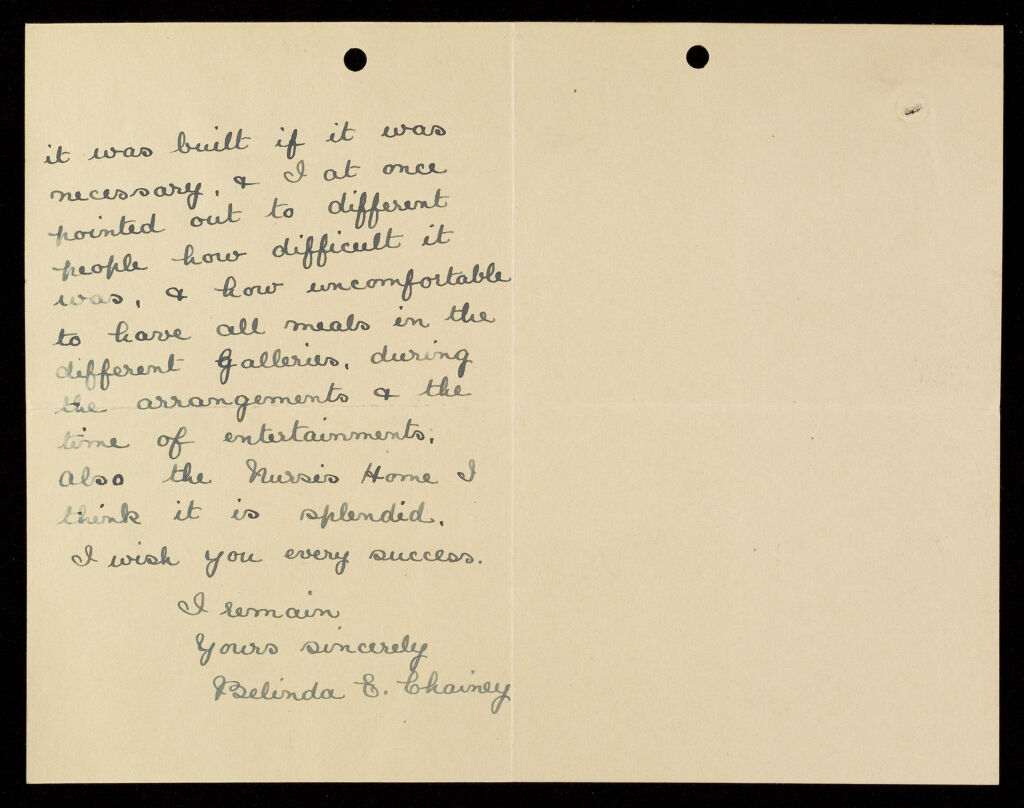 it was built if it was
necessary, & I at once
pointed out to different
people how difficult it
was, & how uncomfortable
to have all meals in the
different Galleries, during
the arrangements & the
time of entertainments.
Also the Nurses Home I
think it is splendid.
I wish you every success.
I remain
Yours sincerely
Belinda E. Chainey